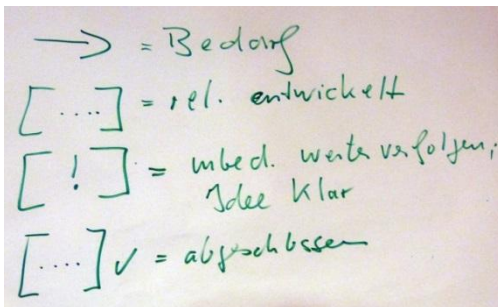 → = Bedarf
[....] = rel. entwickelt
[ ! ] = unbed. weiter verfolgen,
Idee klar
[....] ✓ = abgeschlossen